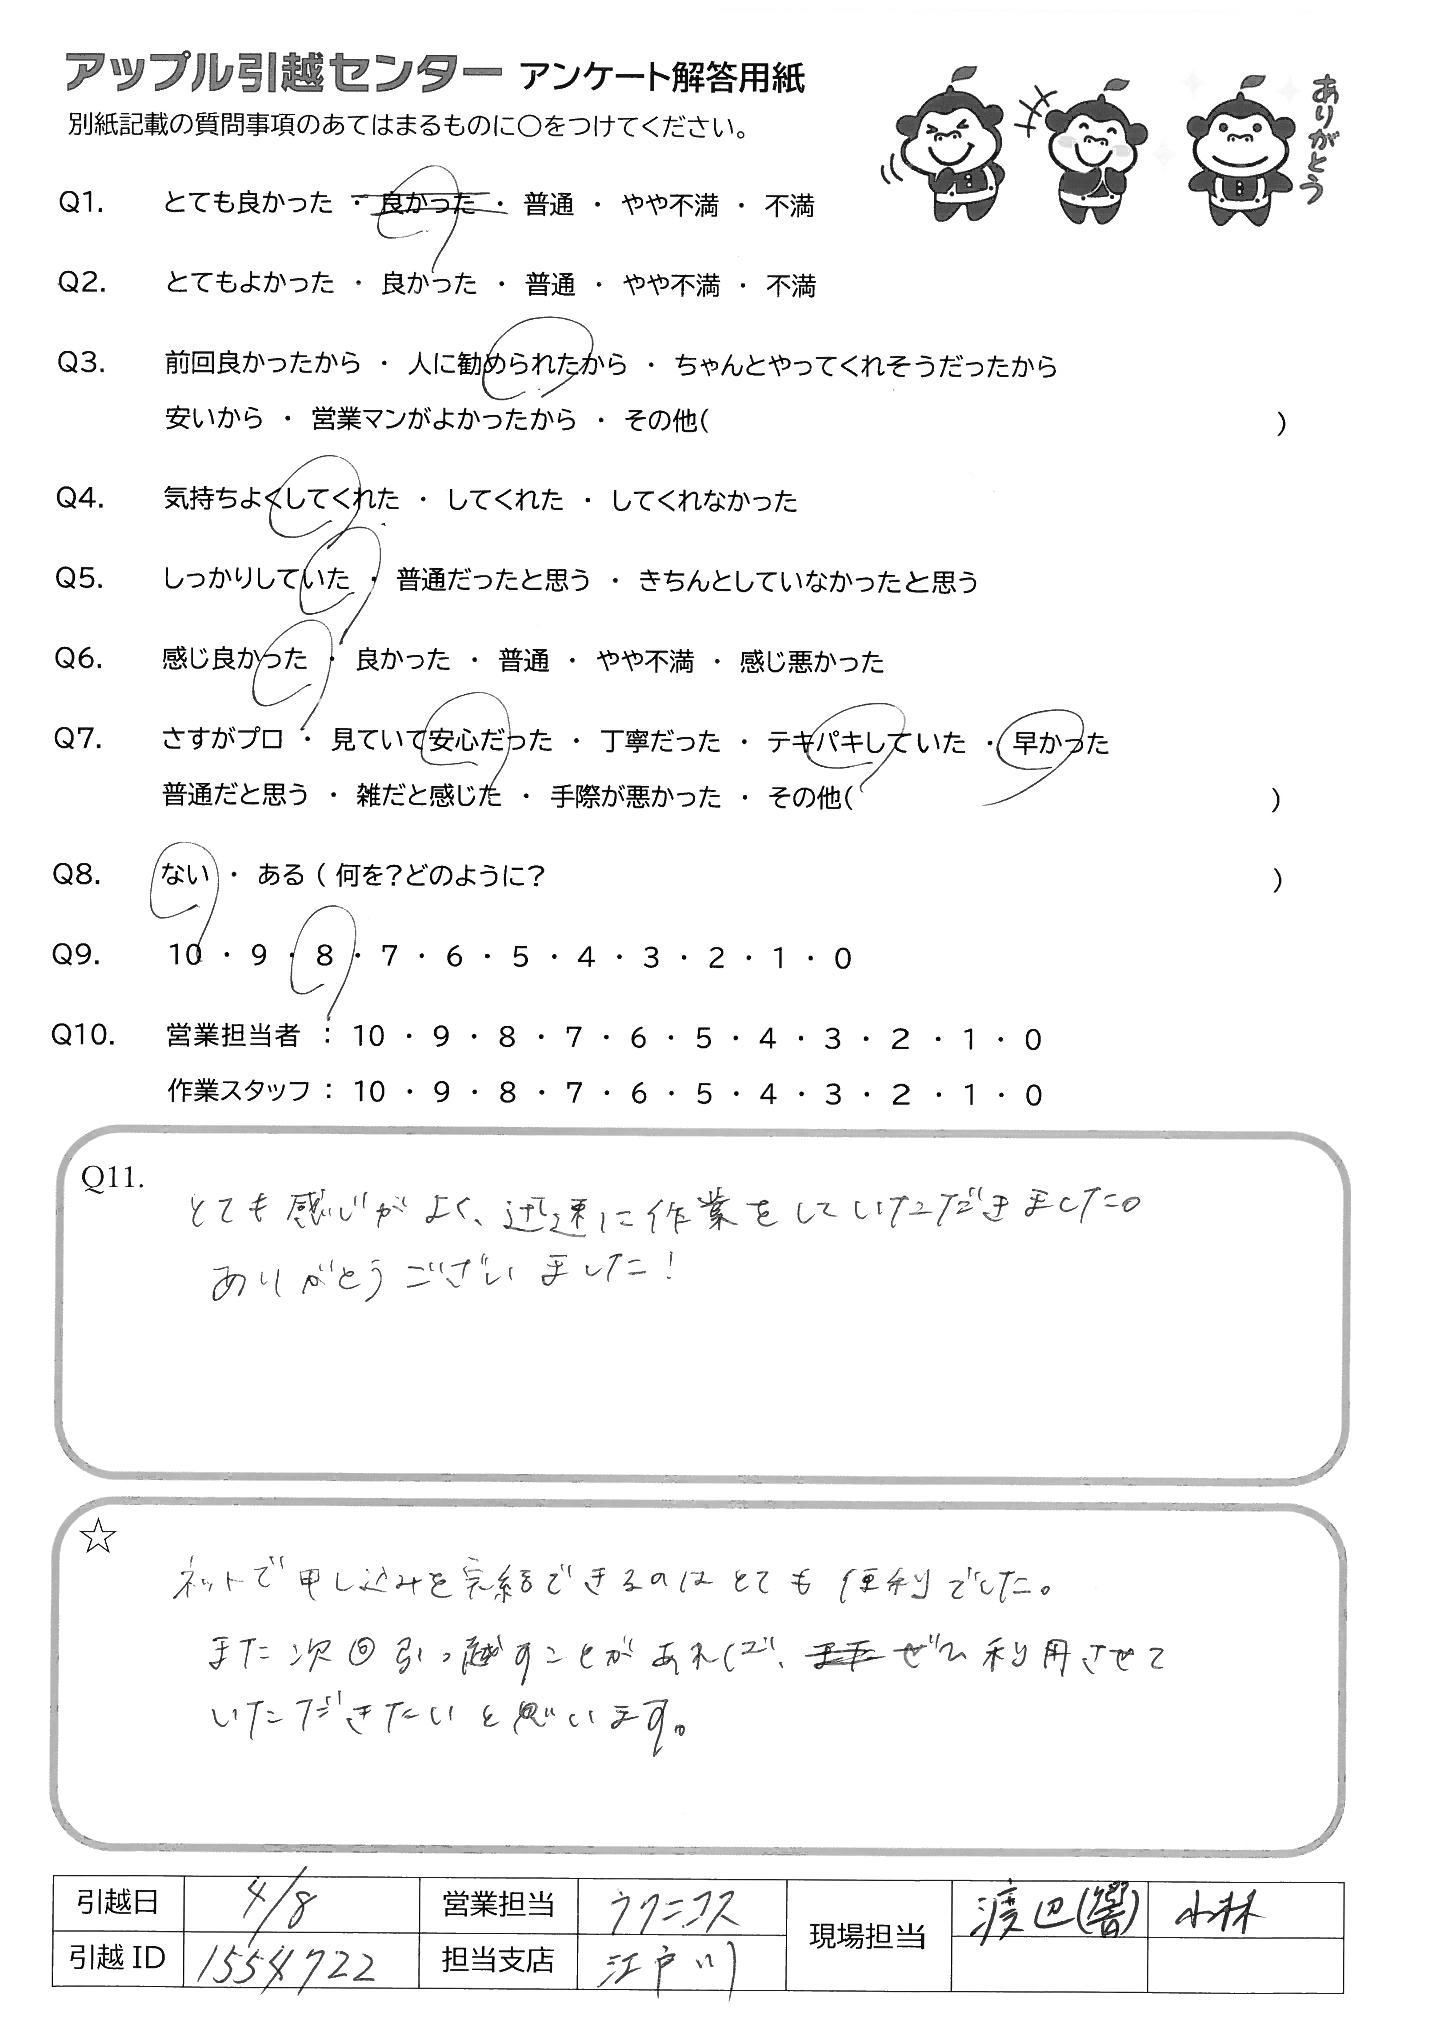 アップル引越センター アンケート解答用紙
別紙記載の質問事項のあてはまるものに○をつけてください。
ありがとう
Q1. とても良かった ・ 良かった ・ 普通 ・ やや不満 ・ 不満
Q2. とてもよかった ・ 良かった ・ 普通 ・ やや不満 ・ 不満
Q3. 前回良かったから ・ 人に勧められたから ・ ちゃんとやってくれそうだったから
安いから ・ 営業マンがよかったから ・ その他( )
Q4. 気持ちよくしてくれた ・ してくれた ・ してくれなかった
Q5. しっかりしていた ・ 普通だったと思う ・ きちんとしていなかったと思う
Q6. 感じ良かった ・ 良かった ・ 普通 ・ やや不満 ・ 感じ悪かった
Q7. さすがプロ ・ 見ていて安心だった ・ 丁寧だった ・ テキパキしていた ・ 早かった
普通だと思う ・ 雑だと感じた ・ 手際が悪かった ・ その他( )
Q8. ない ・ ある ( 何を?どのように? )
Q9. 10 ・ 9 ・ 8 ・ 7 ・ 6 ・ 5 ・ 4 ・ 3 ・ 2 ・ 1 ・ 0
Q10. 営業担当者 : 10 ・ 9 ・ 8 ・ 7 ・ 6 ・ 5 ・ 4 ・ 3 ・ 2 ・ 1 ・ 0
作業スタッフ : 10 ・ 9 ・ 8 ・ 7 ・ 6 ・ 5 ・ 4 ・ 3 ・ 2 ・ 1 ・ 0
Q11.
とても感じがよく、迅速に作業をしていただきました。
ありがとうございました!
☆
ネットで申し込みを完結できるのはとても便利でした。
また次回引っ越すことがあれば、また ぜひ利用させて
いただきたいと思います。
引越日 4/8 営業担当 ラクニコス 現場担当 渡辺(響) 小林
引越 ID 1554722 担当支店 江戸川